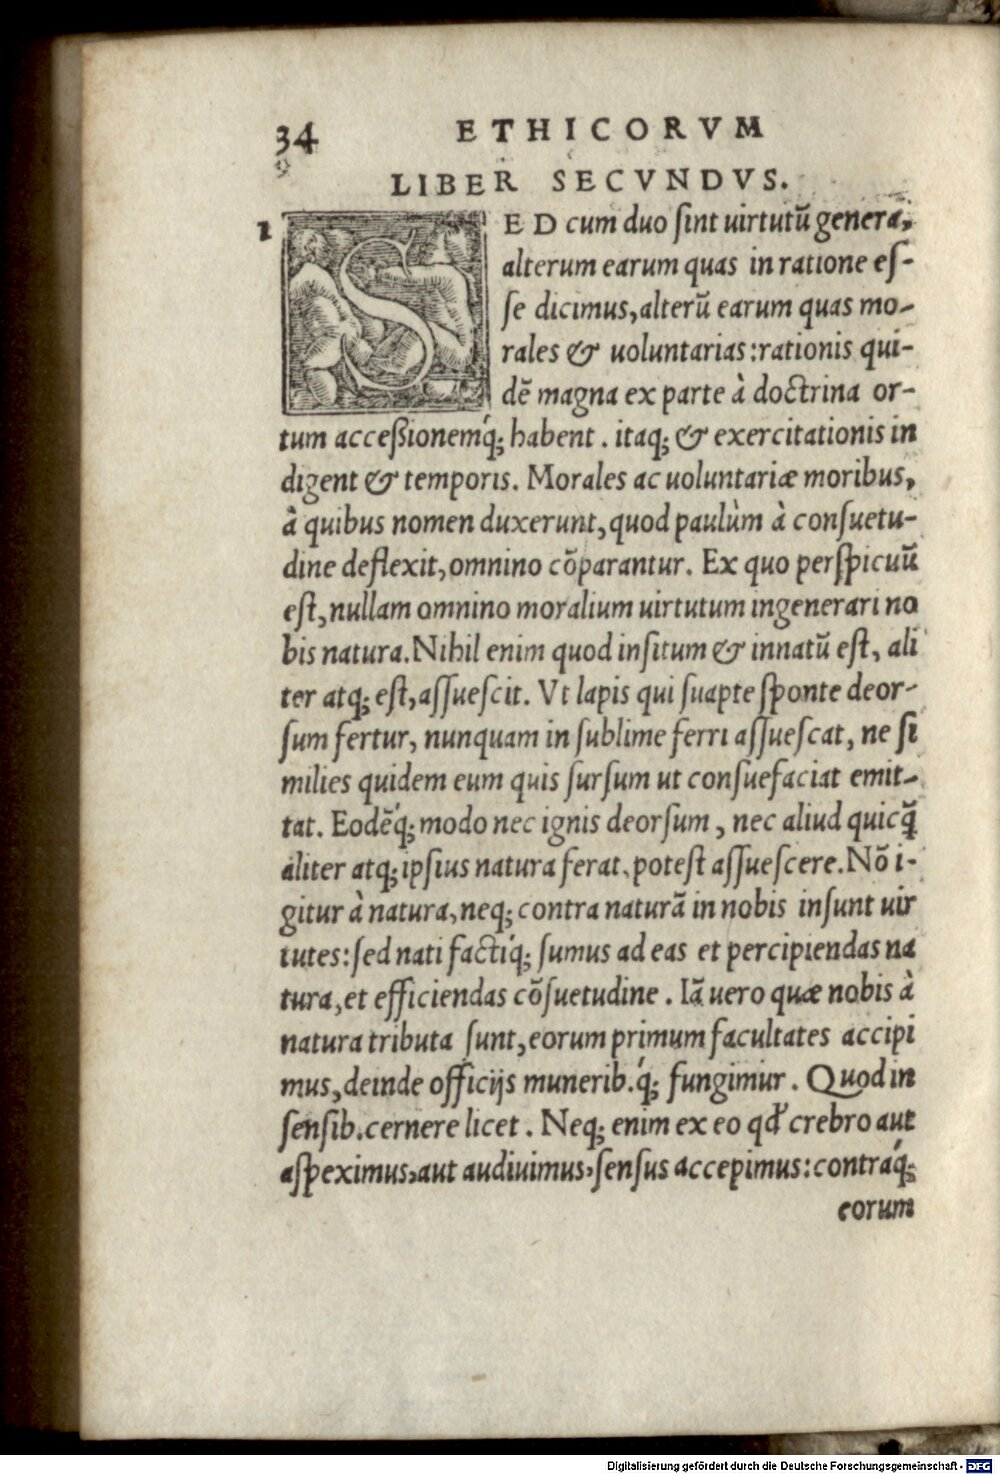 34 ETHICORVM
LIBER SECVNDVS.
1 SED cum duo ſint uirtutū genera,
alterum earum quas in ratione eſ-
ſe dicimus, alterū earum quas mo-
rales & uoluntarias: rationis qui-
dē magna ex parte à doctrina or-
tum acceßionemq́; habent. itaq; & exercitationis in
digent & temporis. Morales ac uoluntariæ moribus,
à quibus nomen duxerunt, quod paulùm à conſuetu-
dine deflexit, omnino cōparantur. Ex quo perſpicuū
eſt, nullam omnino moralium uirtutum ingenerari no
bis natura. Nihil enim quod inſitum & innatū eſt, ali
ter atq; eſt, aſſueſcit. Vt lapis qui ſuapte ſponte deor-
ſum fertur, nunquam in ſublime ferri aſſueſcat, ne ſi
milies quidem eum quis ſurſum ut conſuefaciat emit-
tat. Eodēq́; modo nec ignis deorſum, nec aliud quicq̃
aliter atq; ipſius natura ferat, poteſt aſſueſcere. Nō i-
gitur à natura, neq; contra naturā in nobis inſunt uir
tutes: ſed nati factiq́; ſumus ad eas et percipiendas na
tura, et efficiendas cōſuetudine. Iā uero quæ nobis à
natura tributa ſunt, eorum primum facultates accipi
mus, deinde officijs munerib.q́; fungimur. Quod in
ſenſib. cernere licet. Neq; enim ex eo qđ crebro aut
aſpeximus, aut audiuimus, ſenſus accepimus: contraq́;
eorum
Digitalisierung gefördert durch die Deutsche Forschungsgemeinschaft - DFG